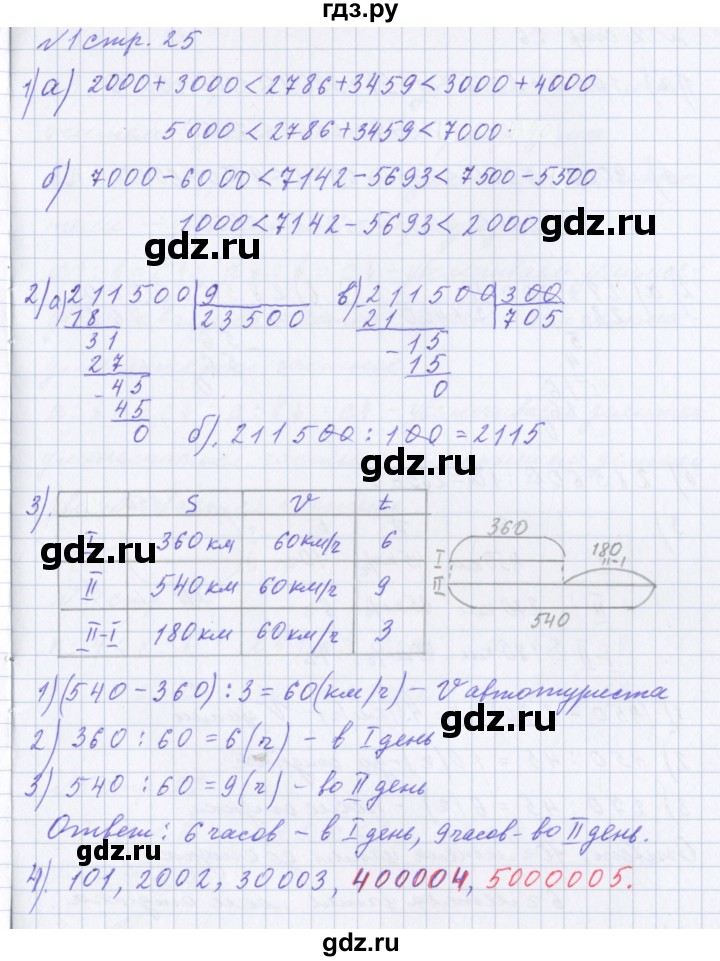 гдз.ру
№1 стр. 25
1) а) 2000+3000<2786+3459<3000+4000
5000<2786+3459<7000.
б) 7000-6000<7142-5693<7500-5500
1000<7142-5693<2000
gdz.ru gdz.ru
2) а) 211500 9 в) 211500 300
18 23500 21 705
31 -15
27 15
-45 0
45
0 б). 211500:100=2115
gdz.ru
3). S V t
I 360 км 60 км/ч 6
II 540 км 60 км/ч 9
II-I 180 км 60 км/ч 3
gdz.ru gdz.ru
360
180
II-I
I
II
540
1) (540-360):3=60(км/ч) - V автотуриста
gdz.ru
2) 360:60=6(ч) - в I день
3) 540:60=9(ч) - во II день
Ответ: 6 часов - в I день, 9 часов - во II день.
gdz.ru gdz.ru
4). 101, 2002, 30003, 400004, 5000005.
gdz.ru